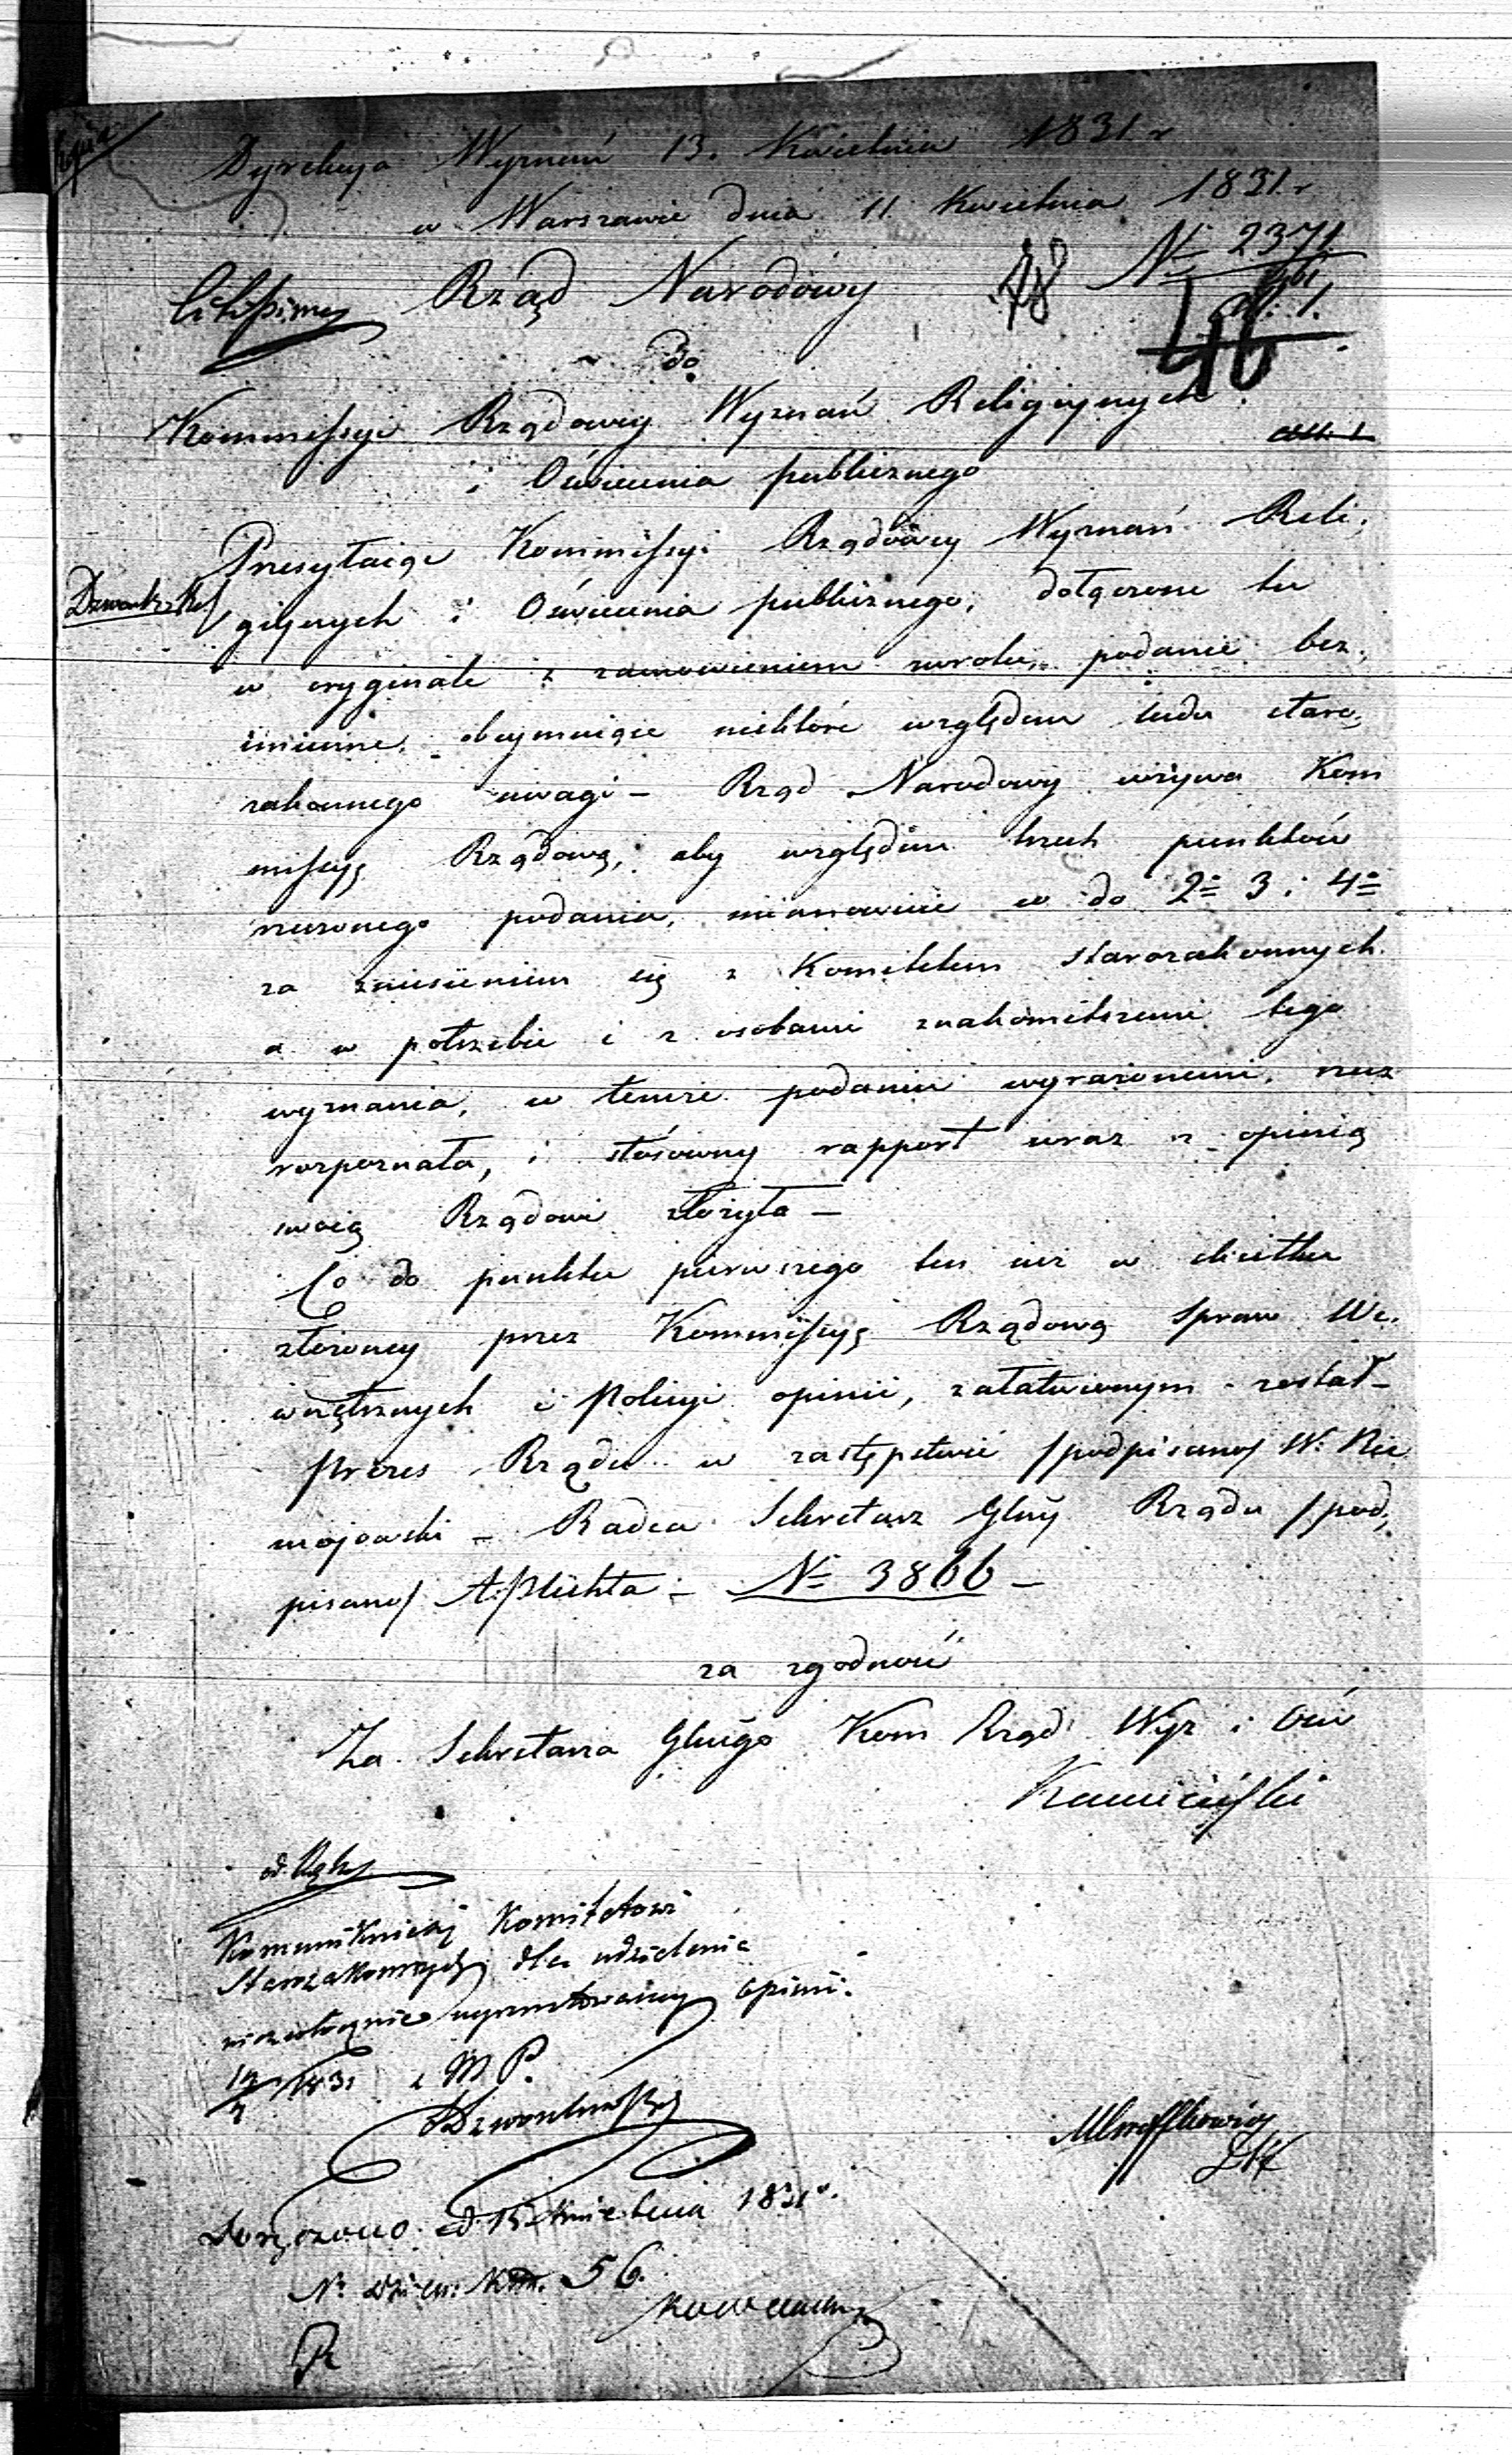 Kopia
Dyrekcya Wyznań 13. Kwietnia 1831. r
w Warszawie dnia 11 Kwietnia 1831. r
Rząd Narodowy
78
№ 2371
al: 1.
46
do
Kommissyi Rządowey Wyznań Religiynych
i Oświecenia publicznego
Przesyłaiąc Kommissyi Rządowey Wyznań Reli,
giynych i Oświecenia publicznego, dołączone tu
w oryginale z zamowieniem zwrotu, podanie bez,
imienne, obeymuiące niektóre względem ludu staro,
zakonnego uwagi – Rząd Narodowy wzywa Kom
missyę Rządową, aby względem trzech punktów
rzeczonego podania, mianowicie co do 2º 3 i 4º
za zniesieniem się z Komitetem starozakonnych
a w potrzebie i z osobami znakomitszemi tego
wyznania, w temże podaniu wyrażonemi, rzecz
rozpoznała, i stósowny rapport wraz z opinią
swoią Rządowi złożyła –
Co do punktu pierwszego ten iuż w skutku
złożoney przez Kommissyę Rządową Spraw We,
wnętrznych i Policyi opinii, załatwionym został –
Prezes Rządu w zastępstwie /podpisano/ W. Nie
mojowski – Radca Sekretarz Glny Rządu /pod,
pisano/ A. Plichta – № 3866 –
za zgodność
Za Sekretarza Glnego Kom Rząd Wyz i Ośw
Kamieński
Komunikuiey Komitetowi
Starozakonnych dla udzielenia
niezwłocznie ugruntowaney opinii.
z M. P.
Doręczono d. 15 Kwietnia 1831 r.
N: Dzien: Kom. 56.